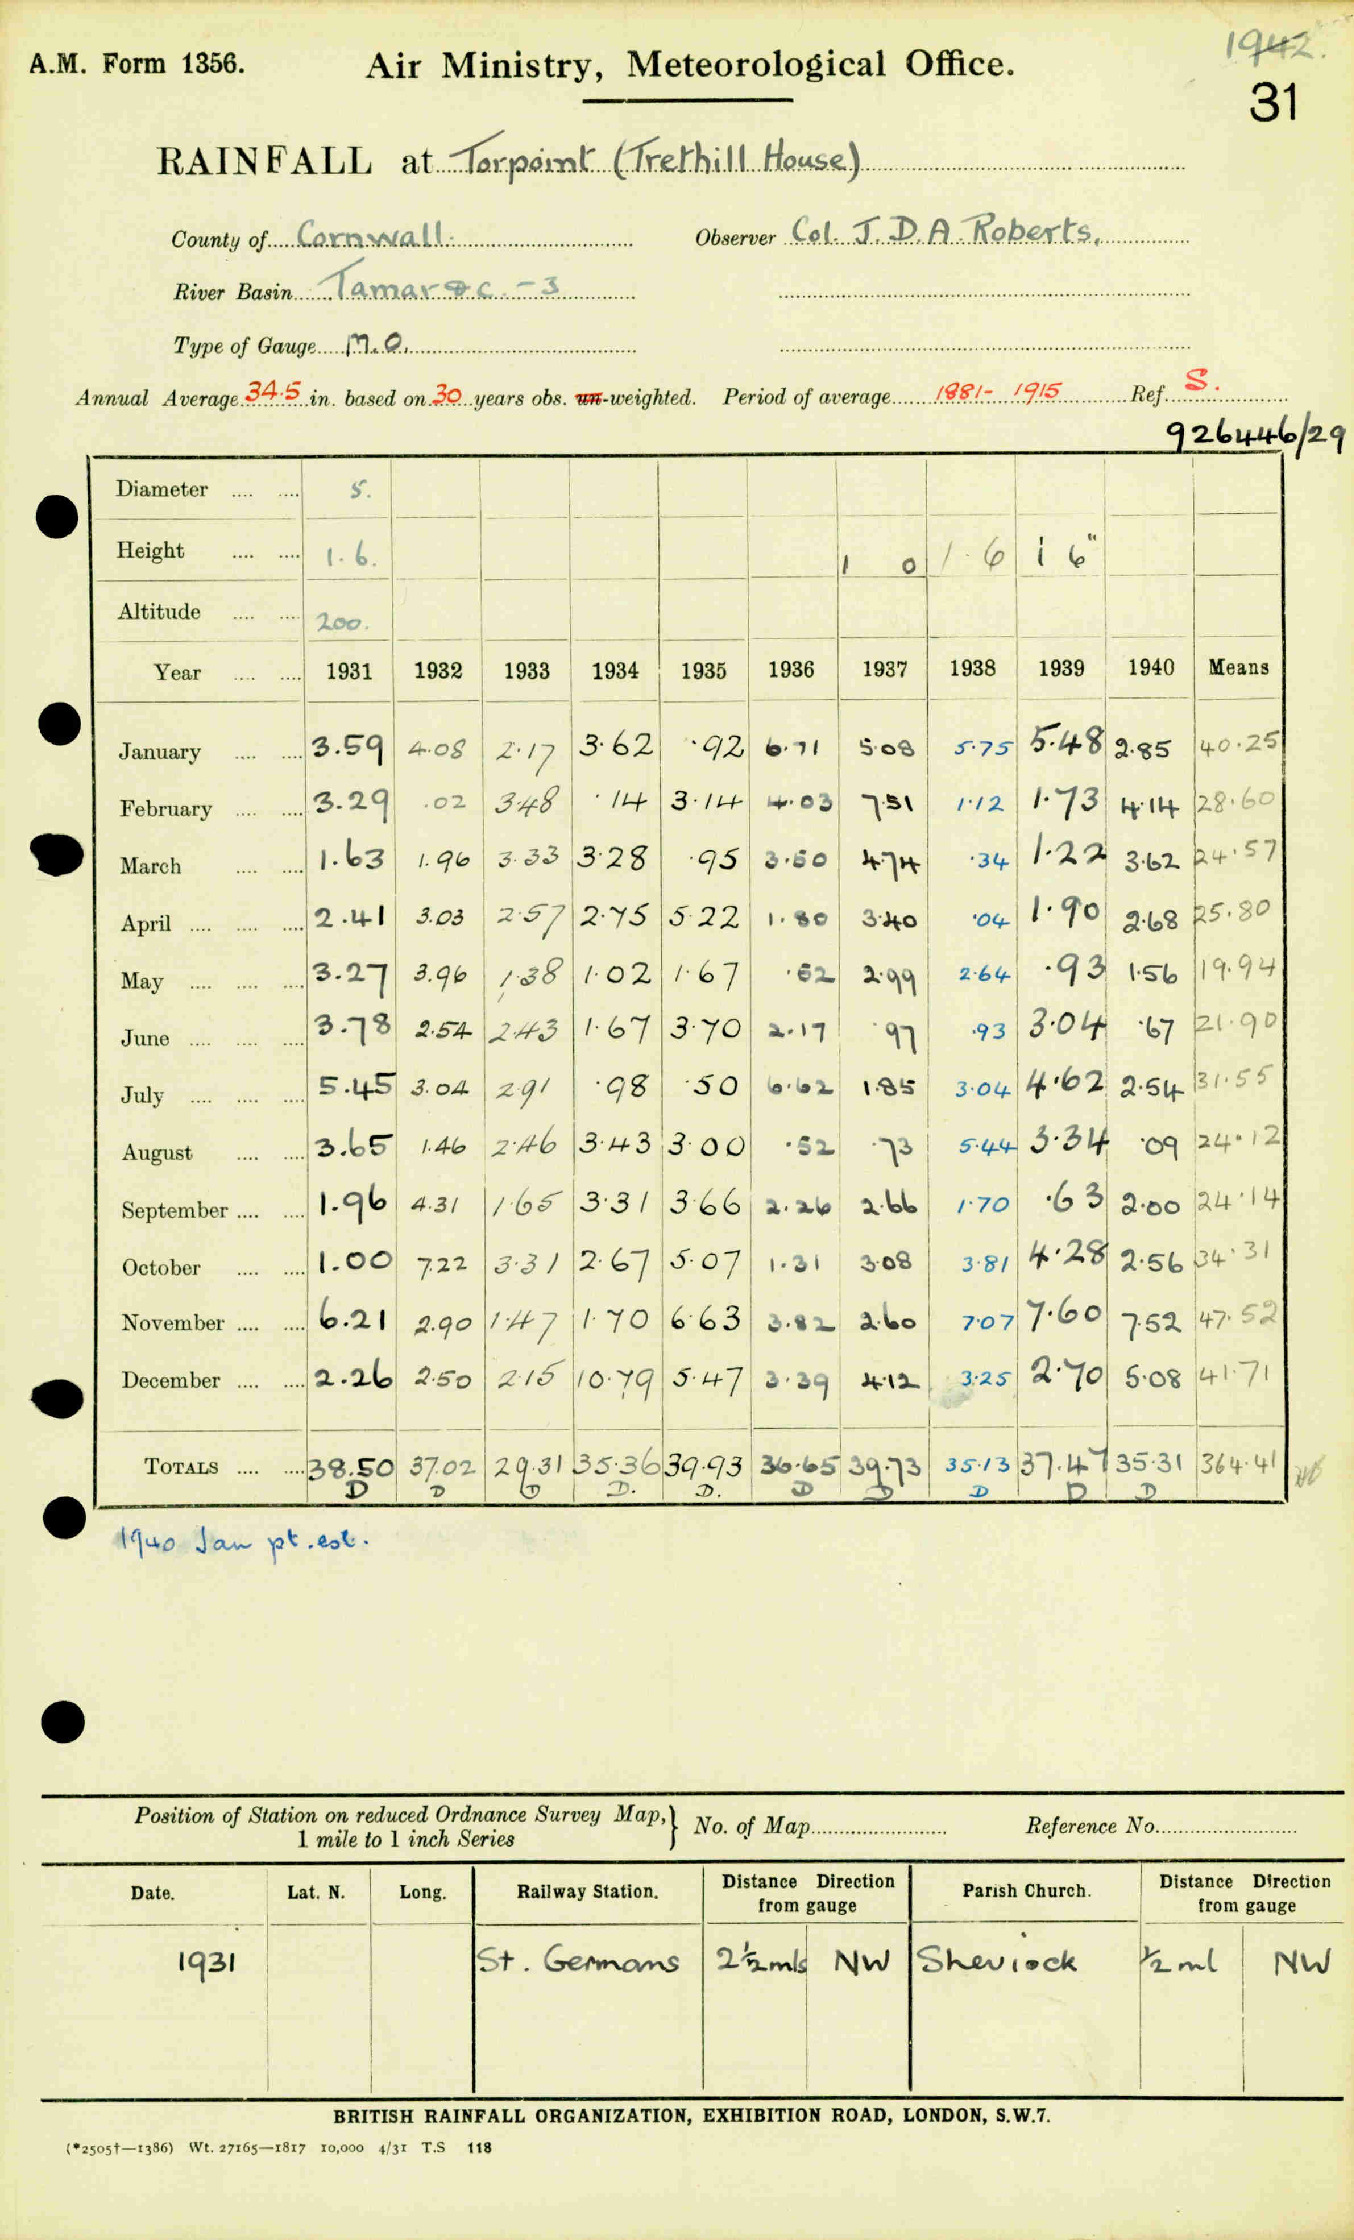 1942.
A.M. Form 1356. Air Ministry, Meteorological Office.
31
RAINFALL at Torpoint (Trethill House)
County of Cornwall. Observer Col. J. D. A. Roberts.
River Basin Tamar &c. - 3
Type of Gauge M.O.
Annual Average 34.5 in. based on 30 years obs. un-weighted. Period of average 1881 - 1915 Ref. S.
926446/29
Diameter 5.
Height 1. 6. 1 0 1. 6 1 6"
Altitude 200.
Year 1931 1932 1933 1934 1935 1936 1937 1938 1939 1940 Means
January 3.59 4.08 2.17 3.62 .92 6.71 5.08 5.75 5.48 2.85 40.25
February 3.29 .02 3.48 .14 3.14 4.03 7.51 1.12 1.73 4.14 28.60
March 1.63 1.96 3.33 3.28 .95 3.50 4.74 .34 1.22 3.62 24.57
April 2.41 3.03 2.57 2.75 5.22 1.80 3.40 .04 1.90 2.68 25.80
May 3.27 3.96 1.38 1.02 1.67 .52 2.99 2.64 .93 1.56 19.94
June 3.78 2.54 2.43 1.67 3.70 2.17 .97 .93 3.04 .67 21.90
July 5.45 3.04 2.91 .98 .50 6.62 1.85 3.04 4.62 2.54 31.55
August 3.65 1.46 2.46 3.43 3.00 .52 .73 5.44 3.34 .09 24.12
September 1.96 4.31 1.65 3.31 3.66 2.26 2.66 1.70 .63 2.00 24.14
October 1.00 7.22 3.31 2.67 5.07 1.31 3.08 3.81 4.28 2.56 34.31
November 6.21 2.90 1.47 1.70 6.63 3.82 2.60 7.07 7.60 7.52 47.52
December 2.26 2.50 2.15 10.79 5.47 3.39 4.12 3.25 2.70 5.08 41.71
TOTALS 38.50 37.02 29.31 35.36 39.93 36.65 39.73 35.13 37.47 35.31 364.41
D D D D. D. D D D D D
1940 Jan pt. est.
Position of Station on reduced Ordnance Survey Map, } No. of Map Reference No.
1 mile to 1 inch Series
Date. Lat. N. Long. Railway Station. Distance Direction from gauge Parish Church. Distance Direction from gauge
1931 St. Germans 2½ mls NW Sheviock ½ ml NW
BRITISH RAINFALL ORGANIZATION, EXHIBITION ROAD, LONDON, S.W.7.
(*2505†—1386) Wt. 27165—1817 10,000 4/31 T.S 118